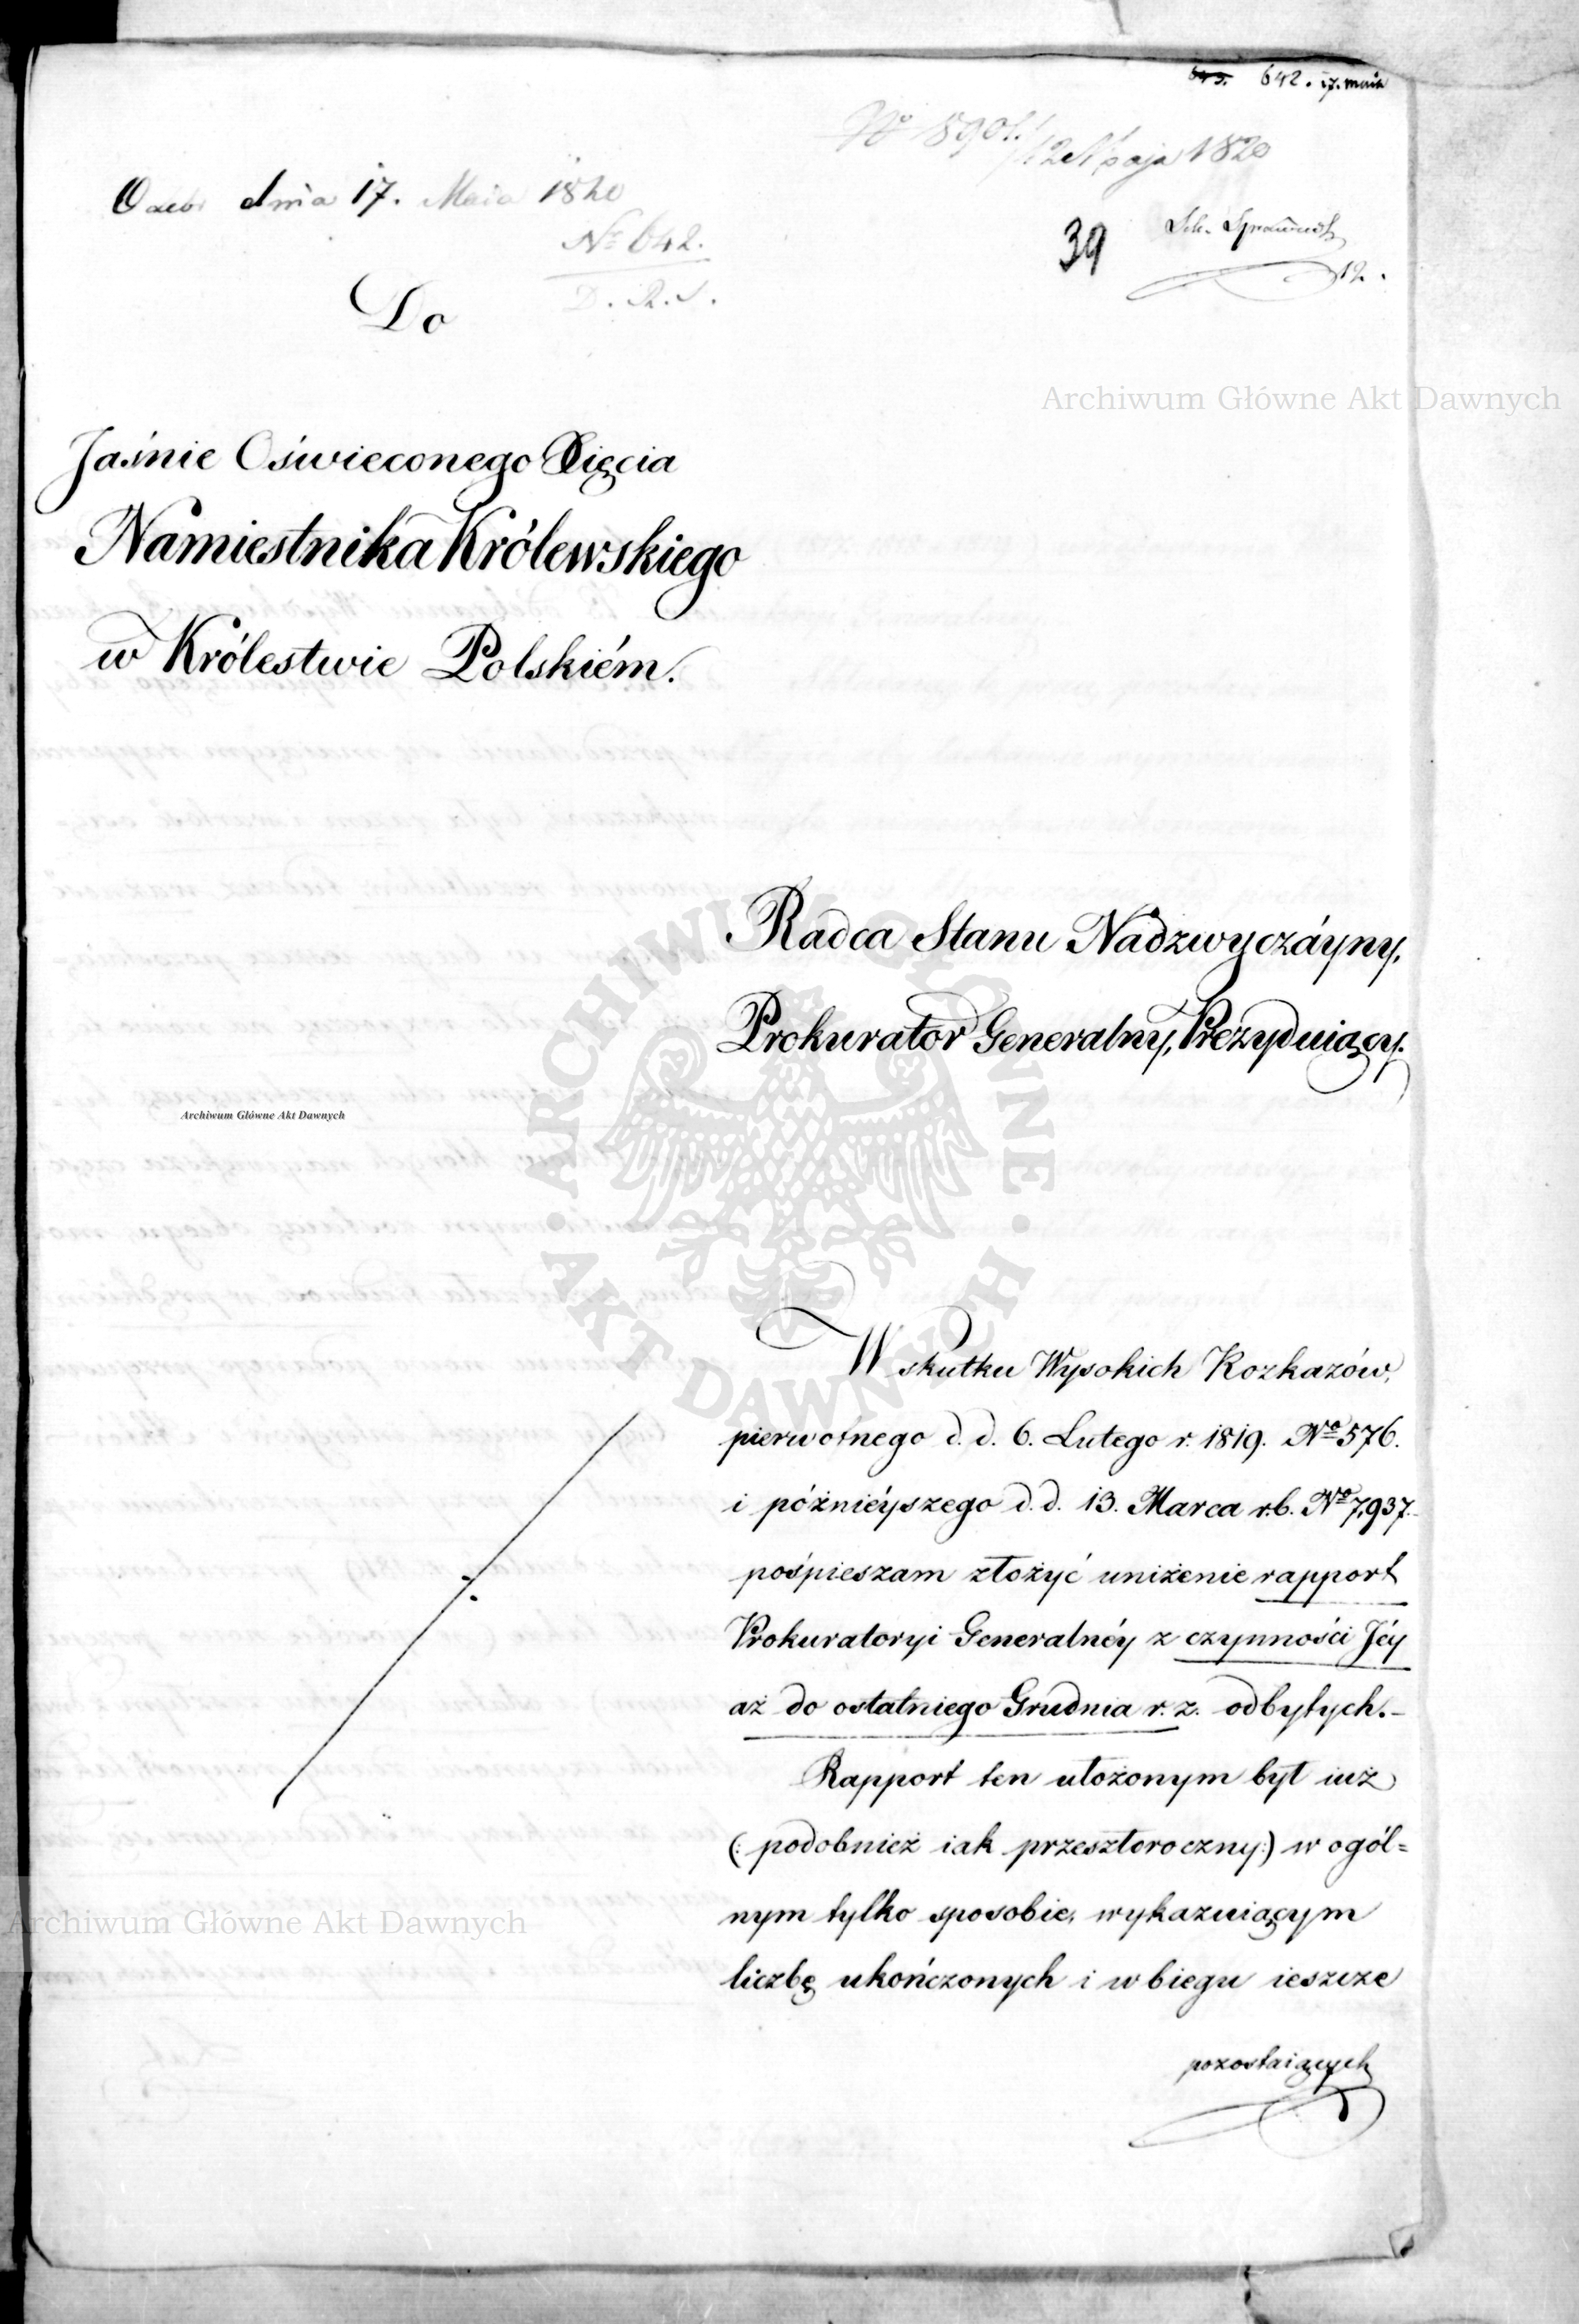 642. 17. maia
No 8901. / 12 Maja 1820
Odeb. dnia 17. Maia 1820
No 642.
D. R. S.
39
12.
Do
Archiwum Główne Akt Dawnych
Jaśnie Oświeconego Xięcia
Namiestnika Królewskiego
w Królestwie Polskiém.
Radca Stanu Nadzwyczáyny,
Prokurator Generalny, Prezyduiący.
Archiwum Główne Akt Dawnych
ARCHIWUM GŁÓWNE · AKT DAWNYCH ·
W skutku Wysokich Rozkazów,
pierwotnego d. d. 6. Lutego r. 1819. No 576.
i późniéyszego d. d. 13. Marca r.b. No 7,937.
pośpieszam złożyć uniżenie rapport
Prokuratoryi Generalnéy z czynności Jéy
aż do ostatniego Grudnia r. z. odbytych.–
Rapport ten ułożonym był iuż
(: podobnież iak przeszłoroczny:) w ogól=
nym tylko sposobie, wykazuiącym
Archiwum Główne Akt Dawnych
liczbę ukończonych i w biegu ieszcze
pozostaiących